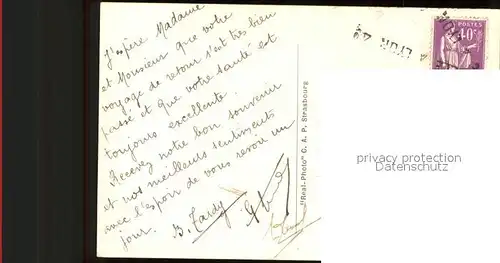 J'espère Madame
et Monsieur que votre
voyage de retour s'est très bien
passé et que votre santé est
toujours excellente.
Recevez notre bon souvenir
et nos meilleurs sentiments
avec l'espoir de vous revoir un
jour. B. Tardy
"Real-Photo" C. A. P. Strasbourg
POSTES
40c
LYON
privacy protection
Datenschutz